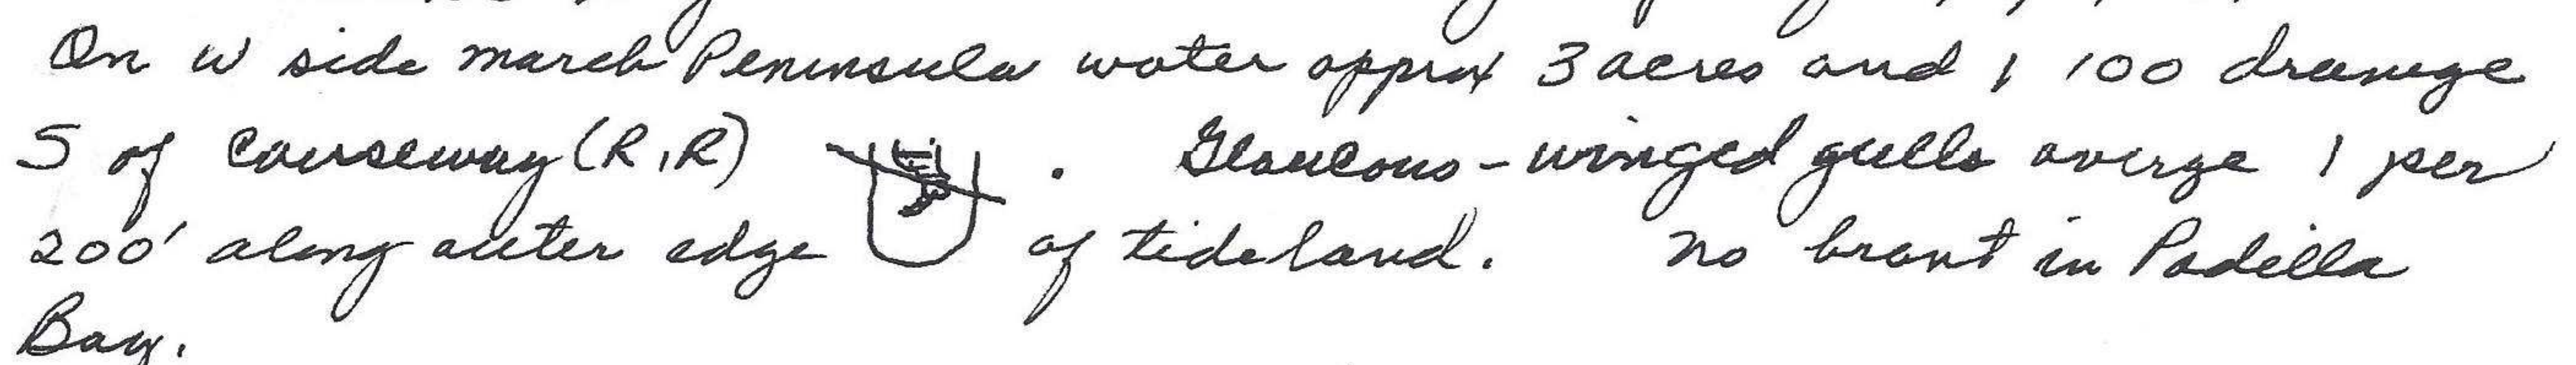 On W side march Peninsula water approx 3 acres and 1 100 drainge
S of Causeway (R.R) . Glaucous-winged gulls averge 1 per
200' along outer edge of tideland. No brant in Padilla
Bay.